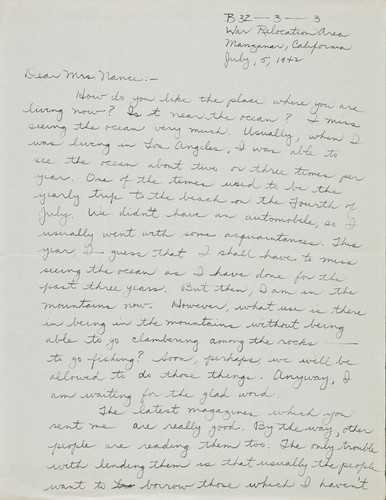 B 32 — 3 — 3
War Relocation Area
Manzanar, California
July, 5, 1942
Dear Mrs. Nance:-
How do you like the place where you are
living now? Is it near the ocean? I miss
seeing the ocean very much. Usually, when I
was living in Los Angeles, I was able to
see the ocean about two or three times per
year. One of the times used to be the
yearly trip to the beach on the Fourth of
July. We didn't have an automobile, so I
usually went with some acquaintances. This
year, I guess that I shall have to miss
seeing the ocean as I have done for the
past three years. But then, I am in the
mountains now. However, what use is there
in being in the mountains without being
able to go clambering among the rocks —
to go fishing? Soon, perhaps, we will be
allowed to do those things. Anyway, I
am waiting for the glad word.
The latest magazines which you
sent me are really good. By the way, other
people are reading them too. The only trouble
with lending them is that usually the people
want to borrow those which I haven't